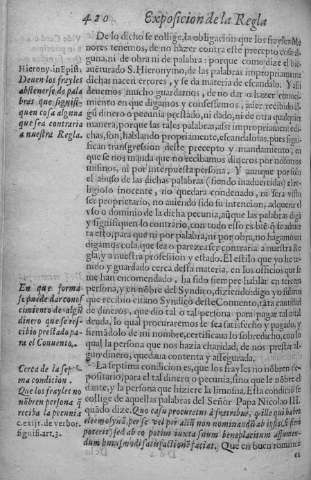 420 Exposicion de la Regla
De lo dicho se collige, la obligacion que los frayles Me
nores tenemos, de no hazer contra este precepto cosa
guna, ni de obra ni de palabra: porque como dize el bi
auēturado S. Hieronymo, de las palabras impropriamente
dichas nacen errores, y se da materia de escandalo. Y assi
deuemos mucho guardarnos, de no dar ni hazer conoci
miento en que digamos y confessemos, auer recebido
gū dinero o pecunia prestado, ni dado, ni de otra qualquier
manera, porque las tales palabras, assi impropriamente di
chas, son, hablando propriamente, escandalosas, pues signi
fican transgression deste precepto y mandamiento, en
que se nos manda que no recibamos dineros por nosotros
mismos, ni por interpuesta persona. Y aunque por solo
el abuso de las dichas palabras (siendo inaduertido) el re
ligioso inocente, no quedara condenado, ni sera visto
ser proprietario, no auiendo sido su intencion, adquirir el
vso o dominio de la dicha pecunia, aūque las palabras digā
y signifiquen lo contrario, con todo esso es biē q̄ se aduier
ta esto, para que ni por palabra, ni por obra, no hagamos ni
digamos cosa, que sea o parezca ser contraria a nuestra Re
gla, y a nuestra profession y estado. El estilo que yo he te
nido y guardado cerca desta materia, en los officios que se
me han encomendado, ha sido siempre hablar en tercera
persona, y en nōbre del Syndico, diziendo: digo yo fulano
que recibio citano Syndico deste Conuento, tāta cantidad
de dineros, que dio tal o tal persona para pagar tal o tal
deuda, lo qual procuraremos se sea satisfecho y pagado, y
firmādolo de mi nombre, certificaua lo sobredicho, con lo
qual la persona que nos hazia charidad, de nos prestar al
gun dinero, quedaua contenta y assegurada.
La septima condicion es, que los frayles no nōbren de
positario, para el tal dinero o pecunia, sino que le nōbre el
dante, y la persona que hiziere la limosna. Esta condiciō se
collige de aquellas palabras del Señor Papa Nicolao III.
quādo dize.
Hierony. in Epist.
Deuen los frayles
abstenerse de pala
bras que signifi-
quen cosa alguna
que sea contraria
a nuestra Regla.
En que forma
se puede dar conoci
cimiento de algū
dinero que se re-
cibio prestado pa-
ra el Conuento.
Cerca de la septi
ma condicion.
Que los frayles no
nōbren persona q̄
reciba la pecunia
c. exijt. de verbor.
signifi. art. 3.